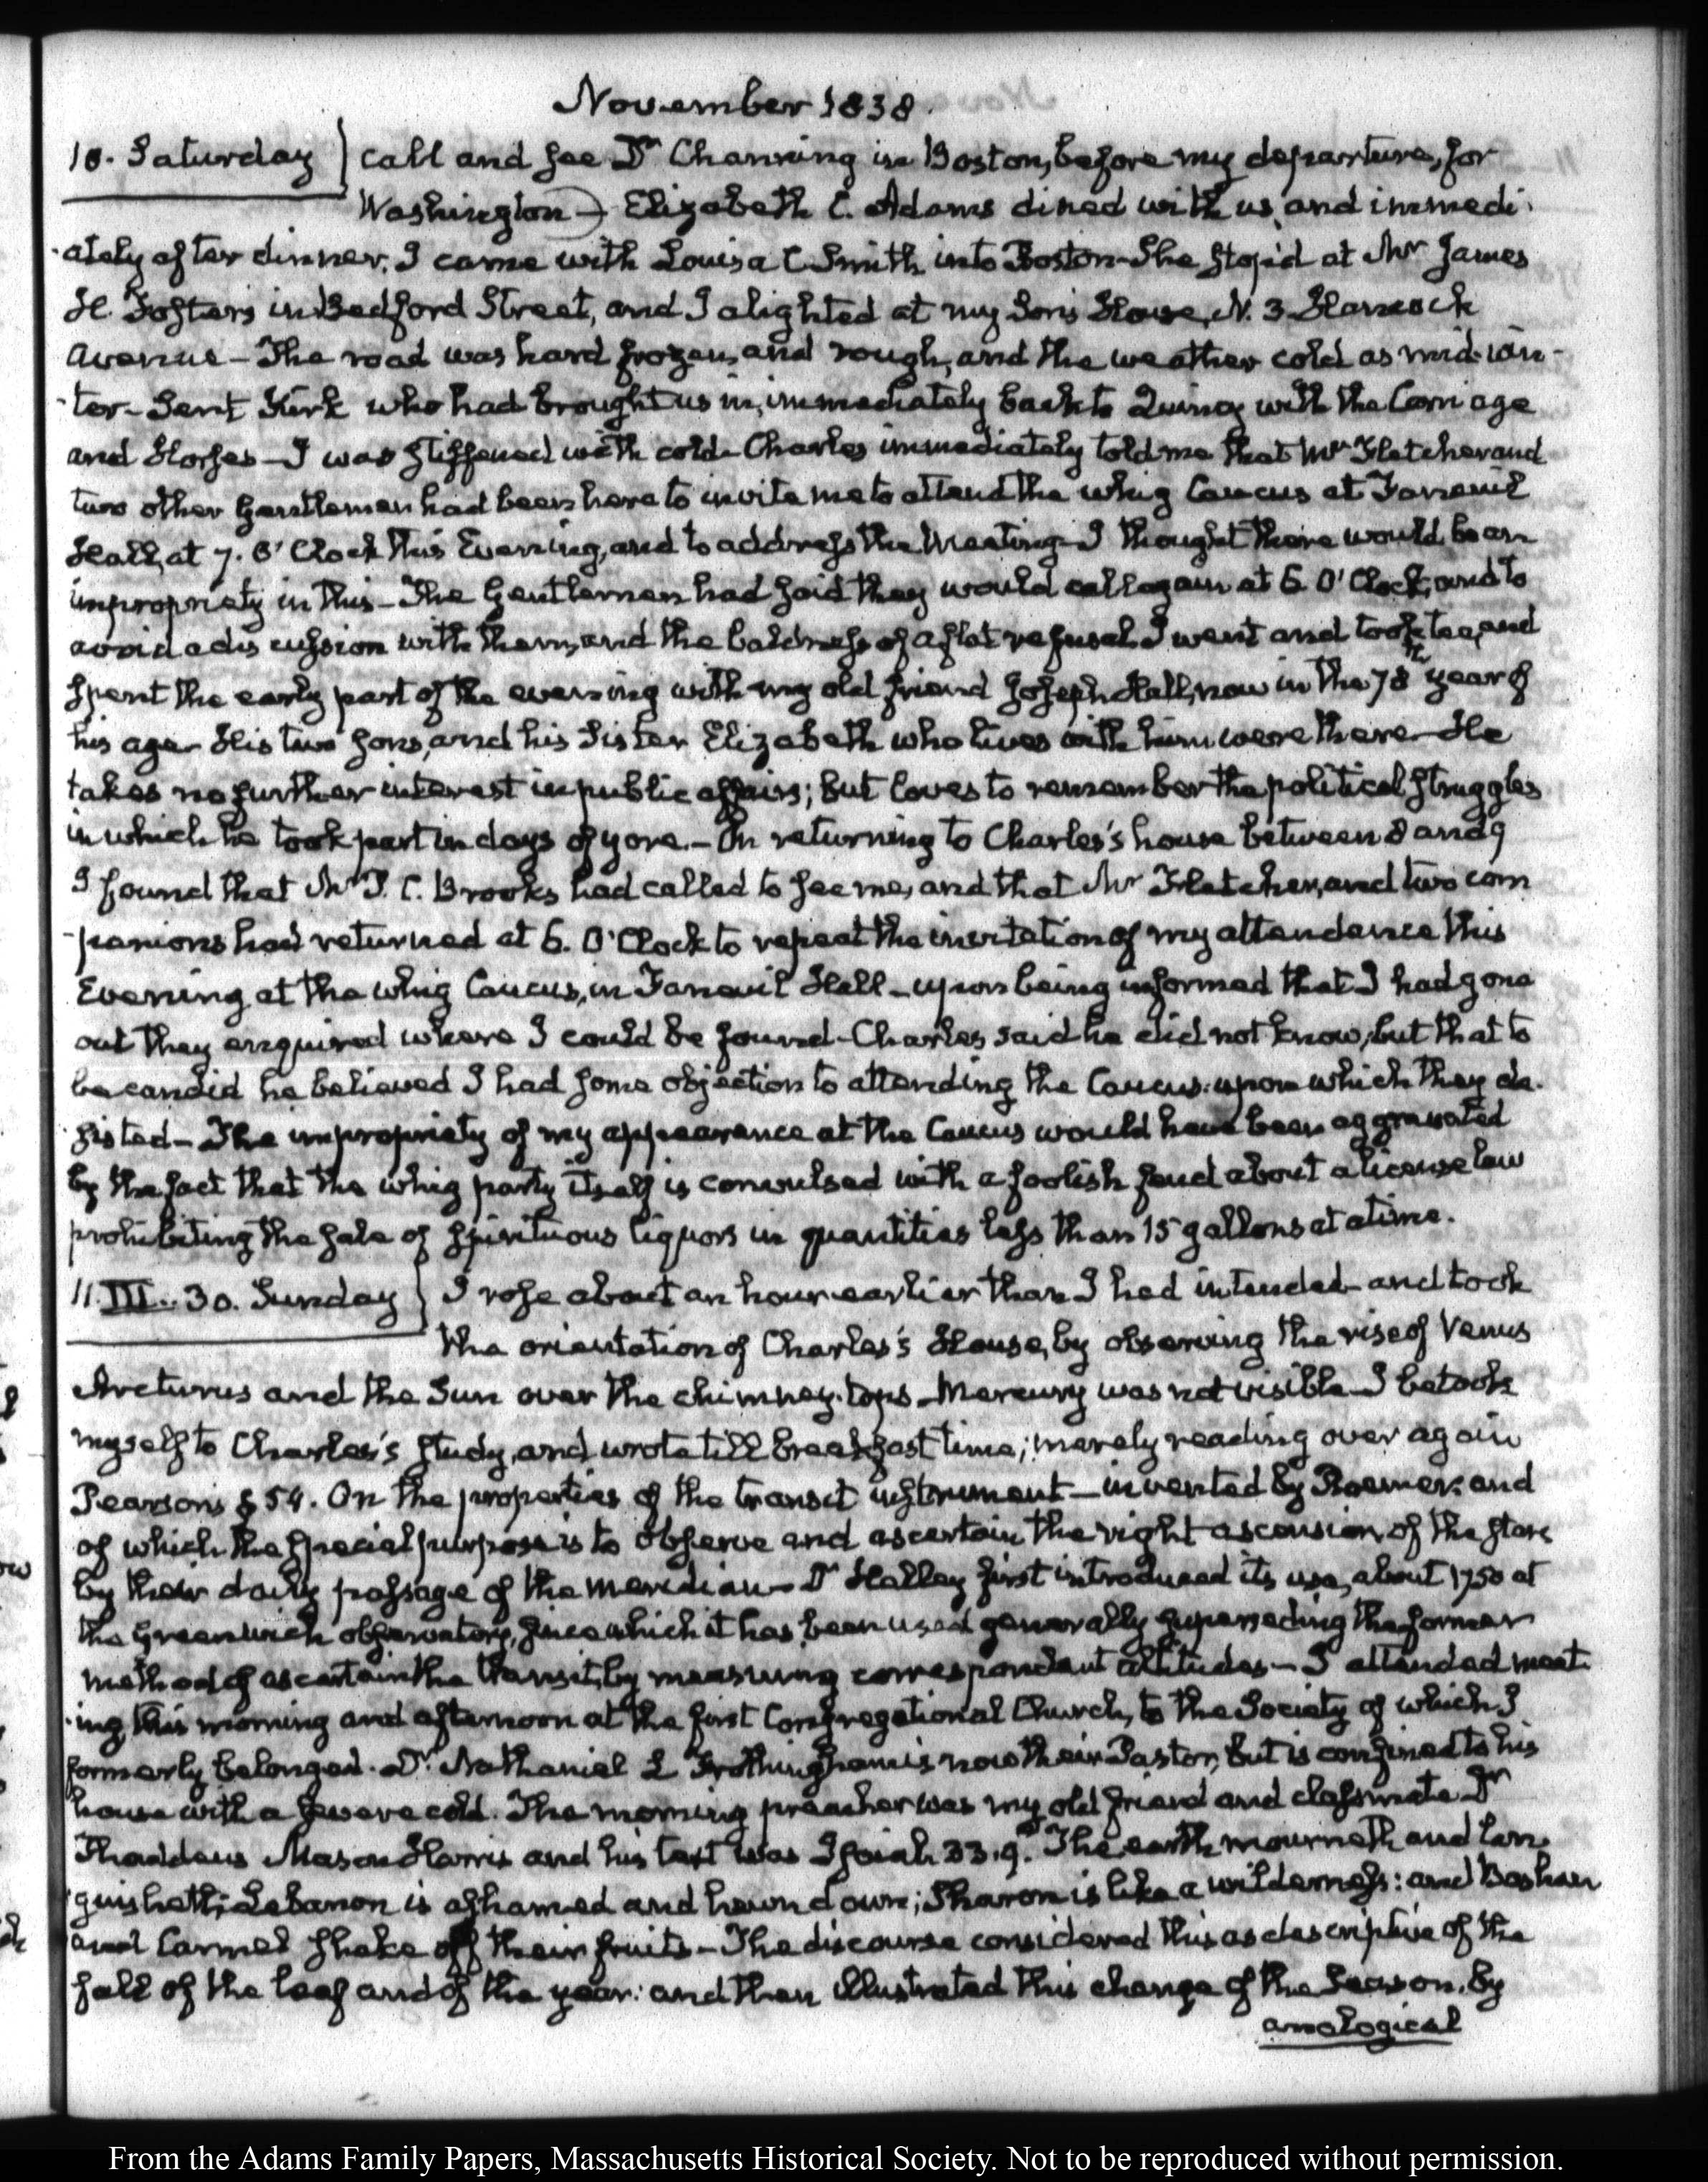 November 1838.
10. Saturday } call and see Dr Channing in Boston, before my departure, for
Washington — Elizabeth C. Adams dined with us, and immedi-
-ately after dinner, I came with Louisa C Smith into Boston — She stop'd at Mr James
H. Foster's in Bedford Street, and I alighted at my Son's House, N. 3 Hancock
Avenue — The road was hard frozen, and rough, and the weather cold as mid-win-
-ter — Sent Kirk who had brought us in, immediately back to Quincy with the Carriage
and Horses — I was stiffened with cold — Charles immediately told me that Mr Fletcher and
two other Gentlemen had been here to invite me to attend the whig Caucus at Faneuil
Hall, at 7. O'Clock this Evening, and to address the Meeting — I thought there would be an
impropriety in this — The Gentlemen had said they would call again at 6 O'Clock, and to
avoid a discussion with them, and the baldness of a flat refusal I went and took tea, and
spent the early part of the evening with my old friend Joseph Hall, now in the 78th year of
his age — His two sons, and his Sister Elizabeth who lives with him were there — He
takes no further interest in public affairs; but loves to remember the political struggles
in which he took part in days of yore. — On returning to Charles's house between 8 and 9
I found that Mr P. C. Brooks had called to see me, and that Mr Fletcher, and two com
-panions had returned at 6. O'Clock to repeat the invitation of my attendance this
Evening, at the whig Caucus, in Faneuil Hall — upon being informed that I had gone
out they enquired where I could be found — Charles said he did not know, but that to
be candid he believed I had some objection to attending the Caucus: upon which they de-
-sisted — The impropriety of my appearance at the Caucus would have been aggravated
by the fact that the whig party itself is convulsed with a foolish feud about a license law
prohibiting the sale of spirituous liquors in quantities less than 15 gallons at a time.
11. III. 30. Sunday } I rose about an hour earlier than I had intended — and took
the orientation of Charles's House, by observing the rise of Venus
Arcturus and the Sun over the chimney-tops — Mercury was not visible — I betook
myself to Charles's study, and wrote till breakfast time; merely reading over again
Pearson's § 54. On the properties of the transit instrument — invented by Roemer: and
of which the special purpose is to observe and ascertain the right ascension of the stars
by their daily passage of the meridian — Dr Halley first introduced its use, about 1750 at
the Greenwich observatory, since which it has been used generally superseding the former
method of ascertain the transit, by measuring correspondent altitudes — I attended meet-
-ing, this morning and afternoon at the first Congregational Church, to the Society of which I
formerly belonged. Dr. Nathaniel L Frothingham is now their Pastor, but is confined to his
house with a severe cold. The morning preacher was my old friend and classmate Dr
Thaddeus Mason Harris and his text was Isaiah 33.9. The earth mourneth and lan-
guisheth; Lebanon is ashamed and hewn down; Sharon is like a wilderness: and Bashan
and Carmel shake off their fruits — The discourse considered this as descriptive of the
fall of the leaf and of the year: and then illustrated this change of the Season, by
analogical
From the Adams Family Papers, Massachusetts Historical Society. Not to be reproduced without permission.